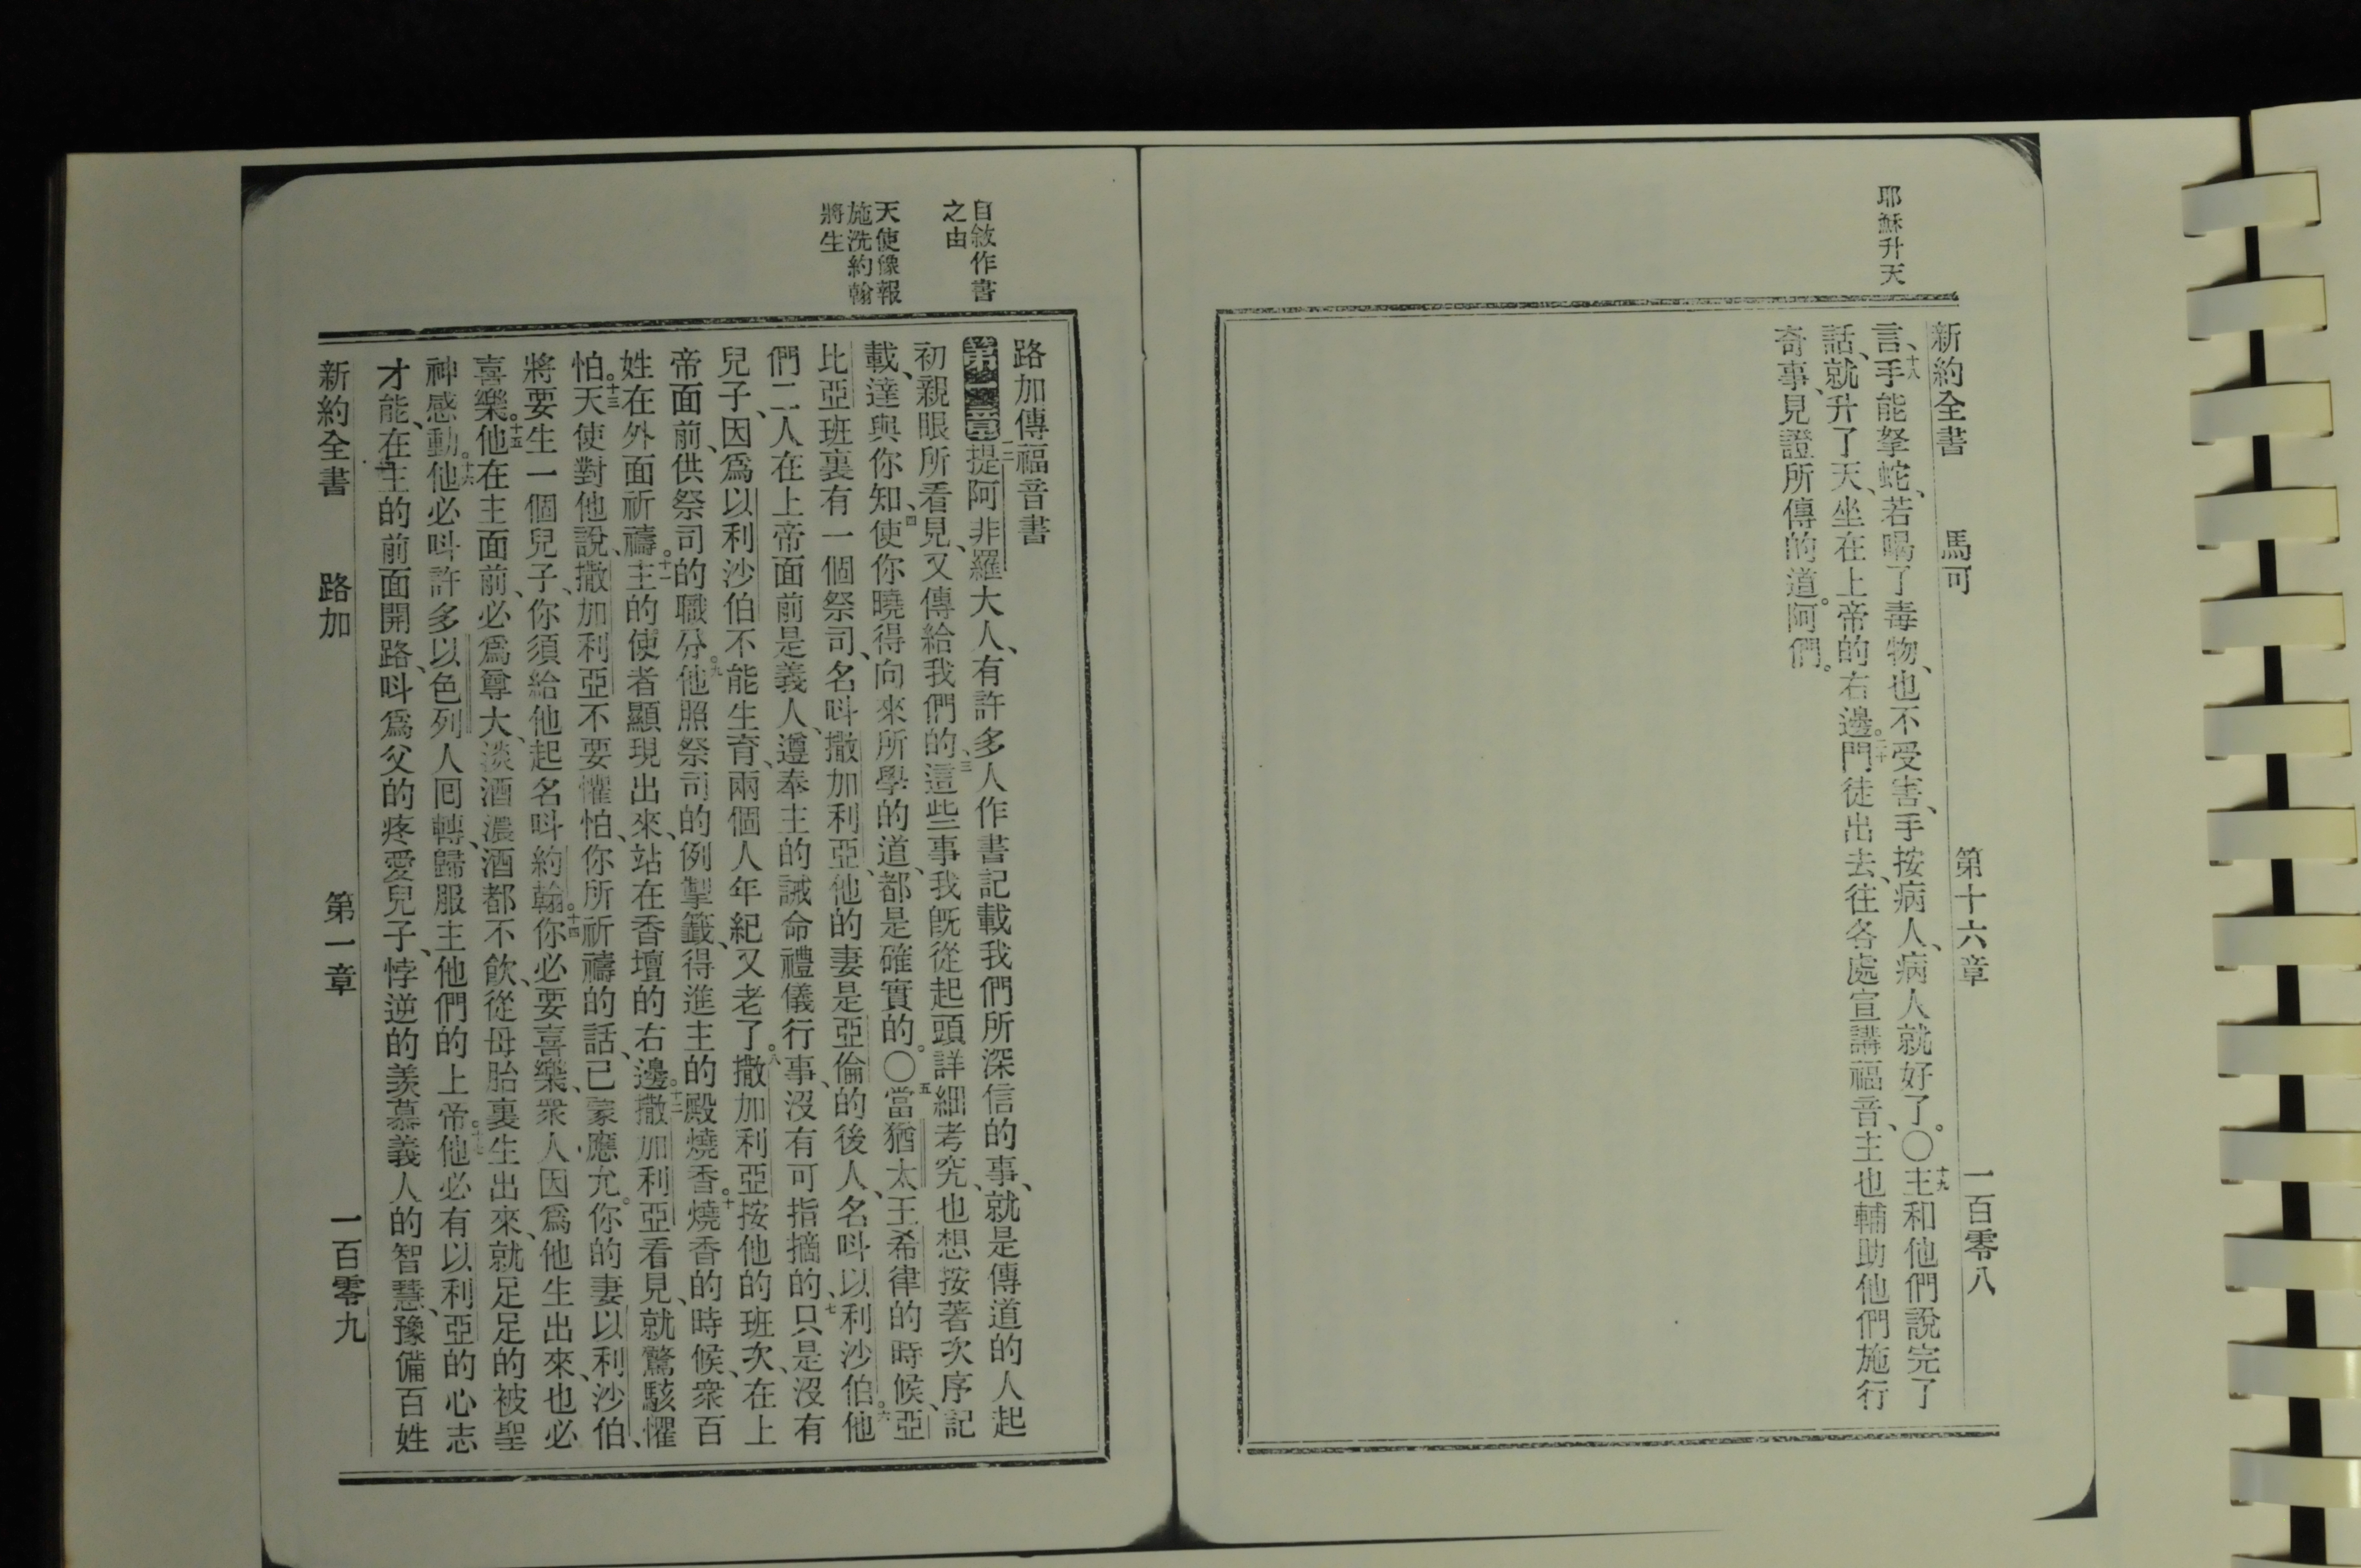 耶穌升天
新約全書 馬可 第十六章 一百零八
言、十八手能拏蛇、若喝了毒物、也不受害、手按病人、病人就好了。〇十九主和他們說完了
話、就升了天、坐在上帝的右邊。二十門徒出去、往各處宣講福音、主也輔助他們施行
奇事、見證所傳的道。阿們。
自敘作書
之由
天使像報
施洗約翰
將生
路加傳福音書
提阿非羅大人、有許多人作書記載我們所深信的事、就是傳道的人起
初親眼所看見、又傳給我們的、三這些事、我旣從起頭詳細考究、也想按著次序記
載、達與你知、四使你曉得向來所學的道、都是確實的。〇五當猶太王希律的時候、亞
比亞班裏有一個祭司、名呌撒加利亞、他的妻是亞倫的後人、名呌以利沙伯。六他
們二人在上帝面前是義人、遵奉主的誡命禮儀行事、沒有可指摘的、七只是沒有
兒子、因爲以利沙伯不能生育、兩個人年紀又老了。八撒加利亞按他的班次、在上
帝面前、供祭司的職分。九他照祭司的例掣籤、得進主的殿燒香。十燒香的時候、衆百
姓在外面祈禱。十一主的使者顯現出來、站在香壇的右邊。十二撒加利亞看見、就驚駭懼
怕。十三天使對他說、撒加利亞不要懼怕、你所祈禱的話、已蒙應允。你的妻以利沙伯、
將要生一個兒子、你須給他起名呌約翰。十四你必要喜樂、衆人因爲他生出來、也必
喜樂。十五他在主面前、必爲尊大、淡酒濃酒都不飮、從母胎裏生出來、就足足的被聖
神感動。十六他必呌許多以色列人囘轉、歸服主他們的上帝。十七他必有以利亞的心志
才能、在主的前面開路、呌爲父的疼愛兒子、悖逆的羨慕義人的智慧、豫備百姓
新約全書 路加 第一章 一百零九